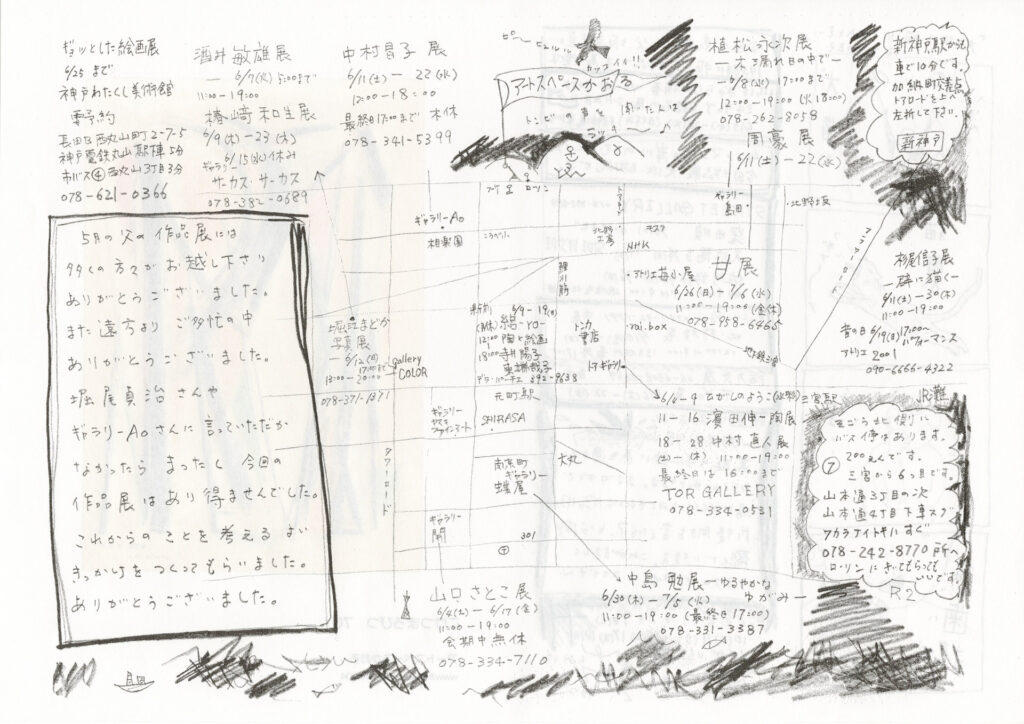 ギョッとした絵画展
6/25 まで
神戸わたくし美術館
要予約
長田区西丸山町2-7-5
神戸電鉄丸山駅徒歩5分
市バス④西丸山3丁目3分
078-621-0366
酒井敏雄展
― 6/7(火) 5:00まで
11:00-19:00
椿崎和生展
6/9(木)-23(木)
6/15(水)休み
ギャラリー
サーカス・サーカス
078-382-0689
中村昌子 展
6/11(土)― 22(水)
12:00-18:00
最終日17:00まで 木休
078-341-5399
ピ〜ヒュルルル
カッコイイ!!
アートスペースかおる
トンビの声を
聞いたんは
植松永次展
―木漏れ日の中で―
― 6/8(水) 17:00まで
12:00-19:00 (火18:00)
078-262-8058
周豪展
6/11(土)― 22(水)
新神戸駅からも
車で10分です。
加納町交差点
トアロードを上へ
左折して下さい。
新神戸
5月の父の作品展には
多くの方々がお越し下さり
ありがとうございました。
また遠方より ご多忙の中
ありがとうございました。
堀尾貞治さんや
ギャラリーAoさんに言っていただか
なかったら まったく 今回の
作品展はあり得ませんでした。
これからのことを考えるよい
きっかけをつくってもらいました。
ありがとうございました。
ギャラリーAo
相楽園
ローソン
トアロード
北野工房
モスク
NHK
ギャラリー島田
北野坂
鯉川筋
アトリエ苺小屋
甘展
6/26(日)― 7/6(水)
11:00-19:00(金休)
078-958-6465
杉尾信子展
6/11(土)-30(木)
11:00-19:00
6/19(日)17:00〜
パフォーマンス
アトリエ2001
090-6666-4322
堀江まどか
写真展
― 6/12(日)
17:00まで
13:00-20:00
078-371-1371
gallery
COLOR
6/9-19(日)
陶と絵画
12:00
18:00
寺井陽子
392-9638
トンカ書店
roi.box
トアギャラリー
地下鉄三宮
元町駅
三宮駅
JR灘
ギャラリー
SHIRASA
6/4-9 ひがしのようこ(水曜休)
11-16 濱田伸一陶展
18-28 中村直人展
(土)―(休) 11:00-19:00
最終日は16:00まで
TOR GALLERY
078-334-0531
南京町
ギャラリー
蝶屋
大丸
タワーロード
ギャラリー
開
301
三ごう北側に
バス停はあります。
200えんです。
⑦ 三宮から6っ目です。
山本通3丁目の次
山本通4丁目下車スグ
ワカラナイトキハすぐ
078-242-8770 所へ
ローリンにきいてもらっても
いいです。
R2
山口さとこ展
6/4(土)― 6/17(金)
11:00-19:00
会期中無休
078-334-7110
中島勉展―ゆるやかな
ゆがみ―
6/30(木)― 7/5(火)
11:00-19:00 (最終日17:00)
078-331-3387